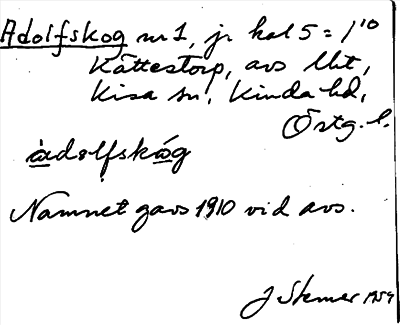 Adolfskog nr 1, jr kal 5 = 1¹⁰
Kättestorp, avs Ubt,
Kisa sn, Kinda hd,
Östg. l.
àdolfskóg
Namnet gavs 1910 vid avs.
J Stemer 1954